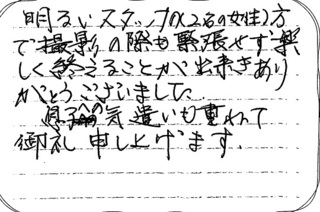 明るいスタッフ(2名の女性)方
で撮影の際も緊張せず楽
しく終えることが出来きあり
がとうございました。
息子への気遣いも重ねて
御礼申し上げます。